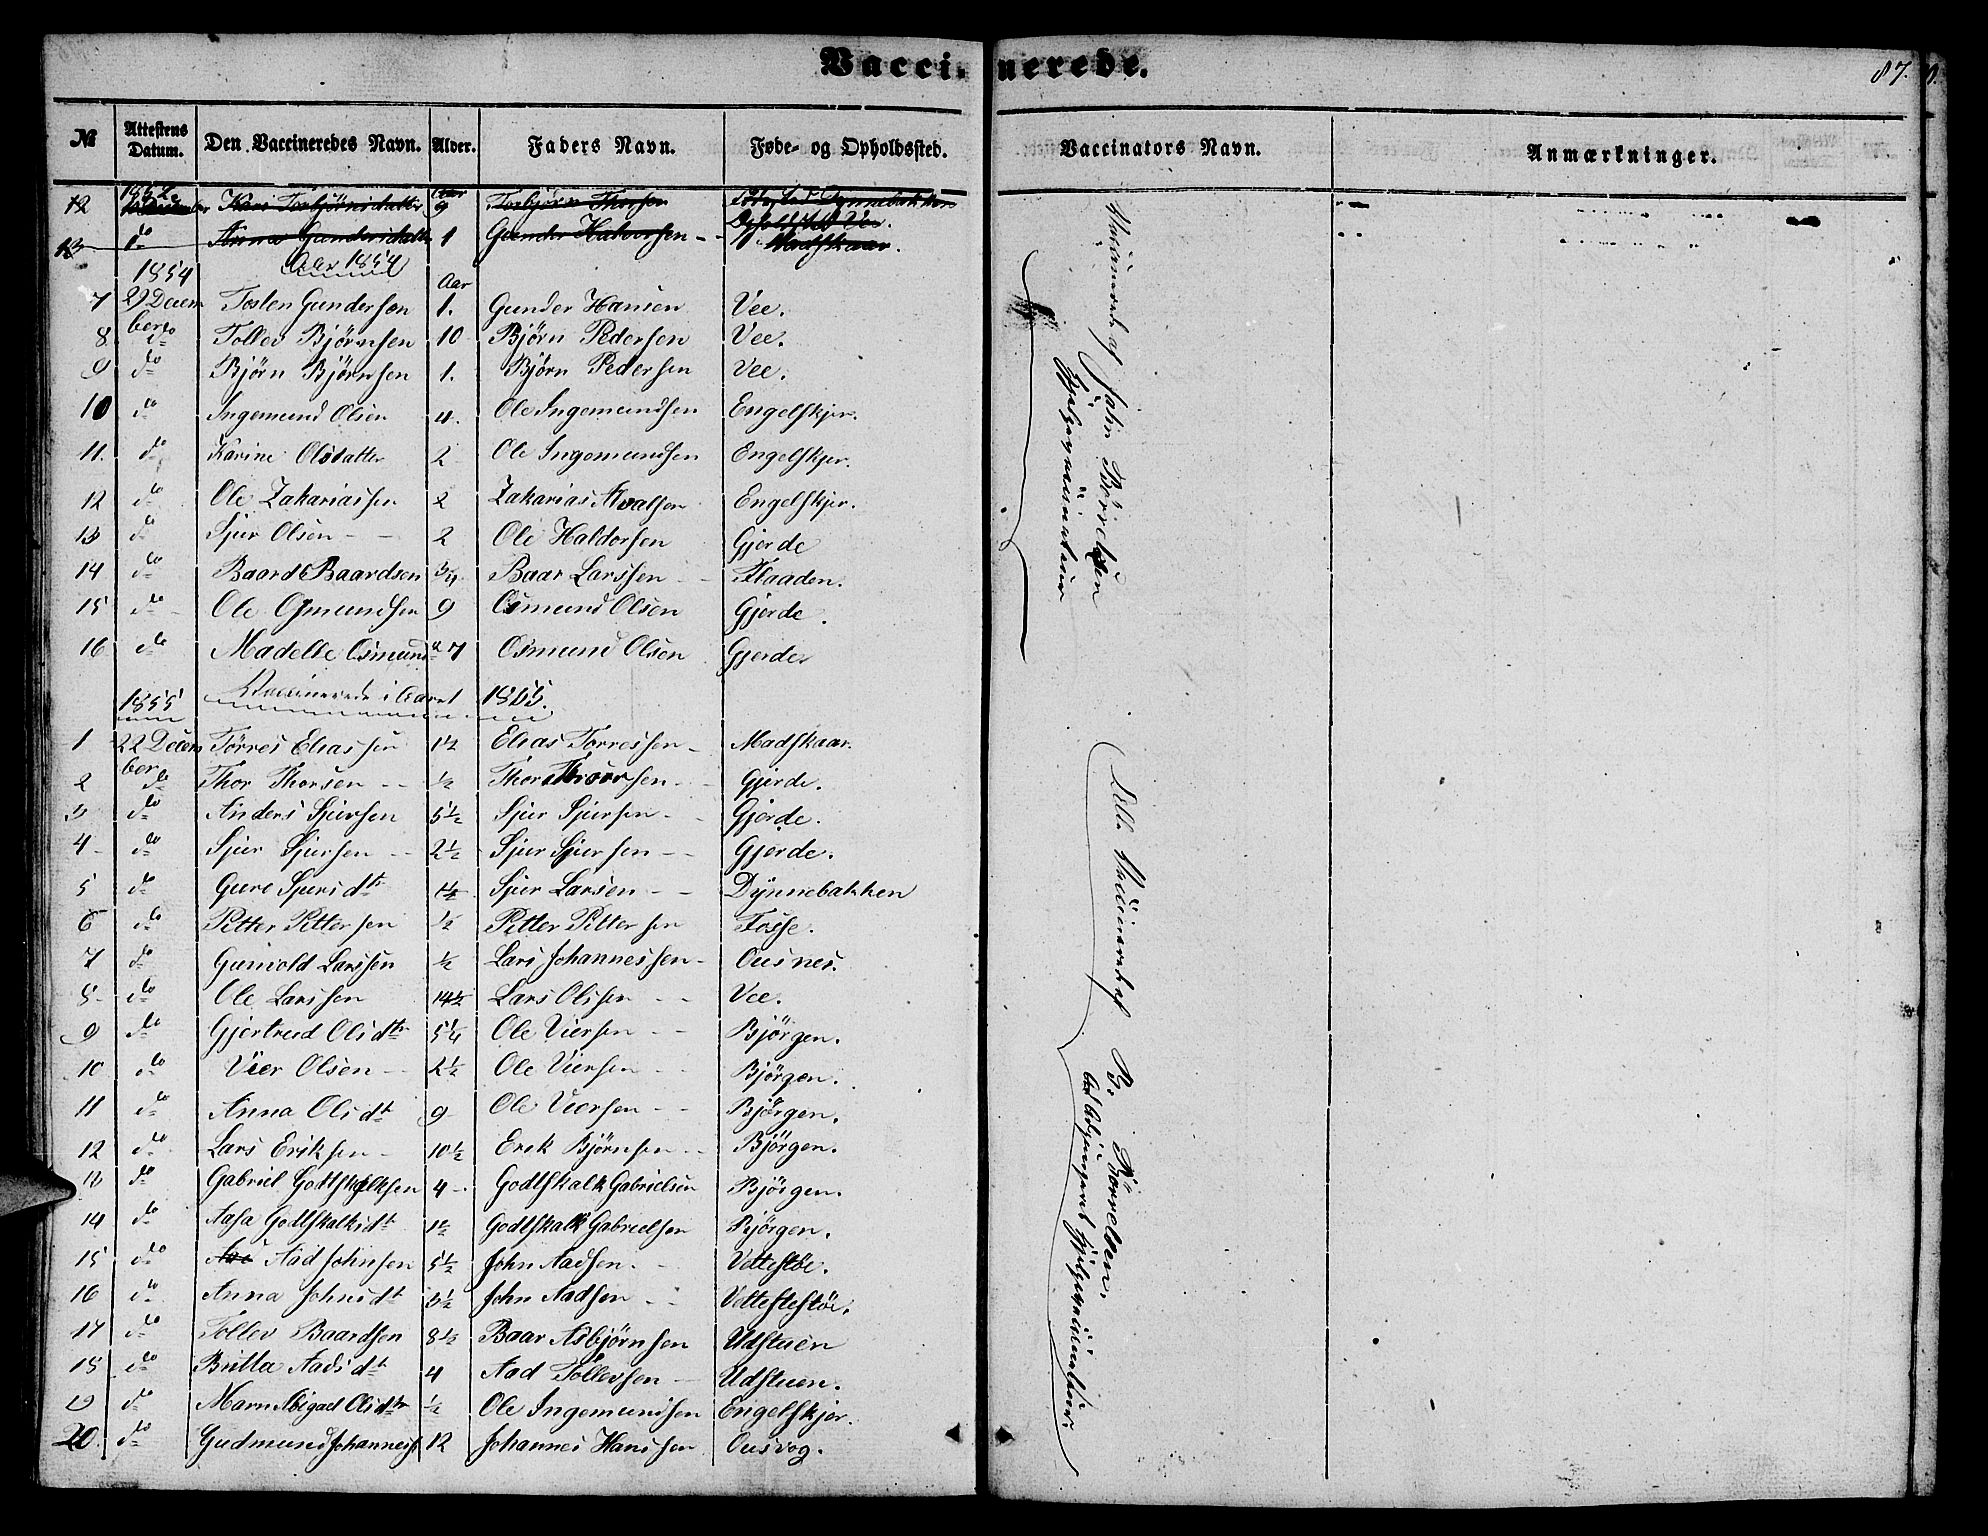 Vaccinerede.
87.
№ Attestens Datum. Den Vaccineredes Navn. Alder. Faders Navn. Føde- og Opholdssted. Vaccinators Navn. Anmærkninger.
12 1852 Kari Torbjørnsdatter Aar 9 Torbjørn Thorsen Dynnebakken
Opholdsted Vee.
13 do Anna Gundersdatter 1 Gunder Halvorsen Madskaar.
1854 Aar 1854 Aar
7 29 Decem Tosten Gundersøn 1. Gunder Hansen Vee.
8 ber do Tollev Bjørnsen 10 Bjørn Pedersen Vee.
9 do Bjørn Bjørnsen 1. Bjørn Pedersen Vee.
10 do Ingemund Olsen 4. Ole Ingemundsen Engelskjer.
11. do Karine Olsdatter 2 Ole Ingemundsen Engelskjer.
12 do Ole Zakariassen 2 Zakarias Engelskjer.
13 do Sjur Olsen - - 2 Ole Haldorsen Gjerde
14 do Baard Baardsen 3/4 Baar Larssen - - Flaaden.
15 do Ole Osmundsen 9 Osmund Olsen Gjerde.
16 do Madelle Osmund 7 Osmund Olsen Gjerde
Vaccinerede af John Børrelsen
Hjelpevaccinateur
1855 Vaccinerede i Aaret 1855.
1 22 Decem Tørres Eliassen 1½ Elias Torressen - Madskaar.
2 ber do Thor Thorsen - - ½ Thor Thorsen - - Gjerde.
3 do Anders Sjursen 5½ Sjur Sjursen - Gjerde.
4 - do Sjur Sjursen - - 2½ Sjur Sjursen - - Gjerde.
5 do Gure Sjursdtr 1½ Sjur Larsen - - Dynnebakken
6 do Petter Pettersen ½ Petter Pettersen Fosse.
7 do Gunvold Larssen ½ Lars Johannessen - Ousnes.
8 - do Ole Larssen 14½ Lars Olssen - - Vee.
9 do Gjertrud Olsdtr 5¼ Ole Viersen - - Bjørgen.
10 do Vier Olsen - - 2½ Ole Viersen - - Bjørgen.
11 do Anna Olsdt 9 - Ole Viersen - - Bjørgen.
12 do Lars Eriksen - 10½ Erek Bjørnsen - - Bjørgen.
13 do Gabriel Godtskalksen 4 - Godtskalk Gabrielsen Bjørgen.
14 do Aasa Godtskalksdt 1½ Godtskalk Gabrielsen Bjørgen.
15 do Aad Johnsen 5½ John Aadsen. - Vettestøe.
16 do Anna Johnsdt 3½ John Aadsen - - Vettestøe.
17 do Tollev Baardsen 8½ Baar Asbjørnsen Udstuen
18 do Britta Aadsdt 4 Aad Tollevsen - Udstuen.
19 do Maren Abigael Olsdtr ½ Ole Ingemundsen Engelskjer.
20. do Gudmund Johanness 12 Johannes Hanssen Ousvog.
Vaccineret af B. Børrelsen.
Hjelpevaccinateur.